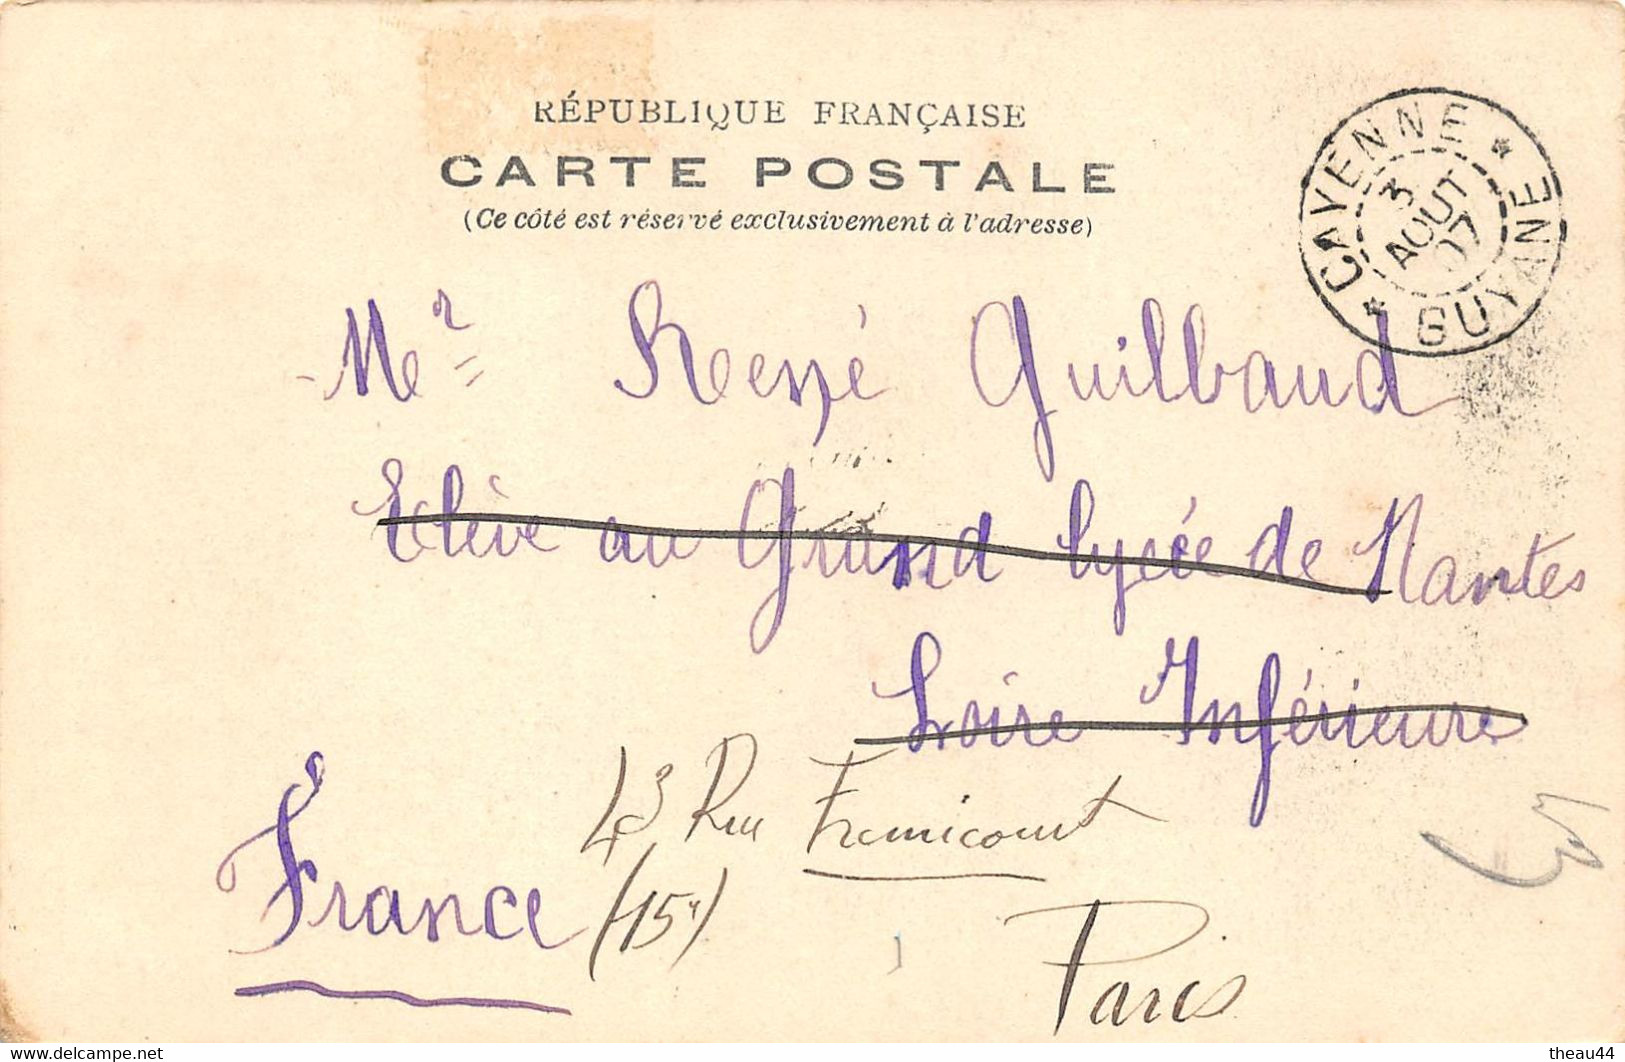 RÉPUBLIQUE FRANÇAISE
CARTE POSTALE
(Ce côté est réservé exclusivement à l'adresse)
CAYENNE * GUYANE *
3
AOUT
07
Mr René Guilbaud
Elève au Grand lycée de Nantes
Loire Inférieure
France
43 Rue Fremicourt
(15e)
Paris
delcampe.net
theau44